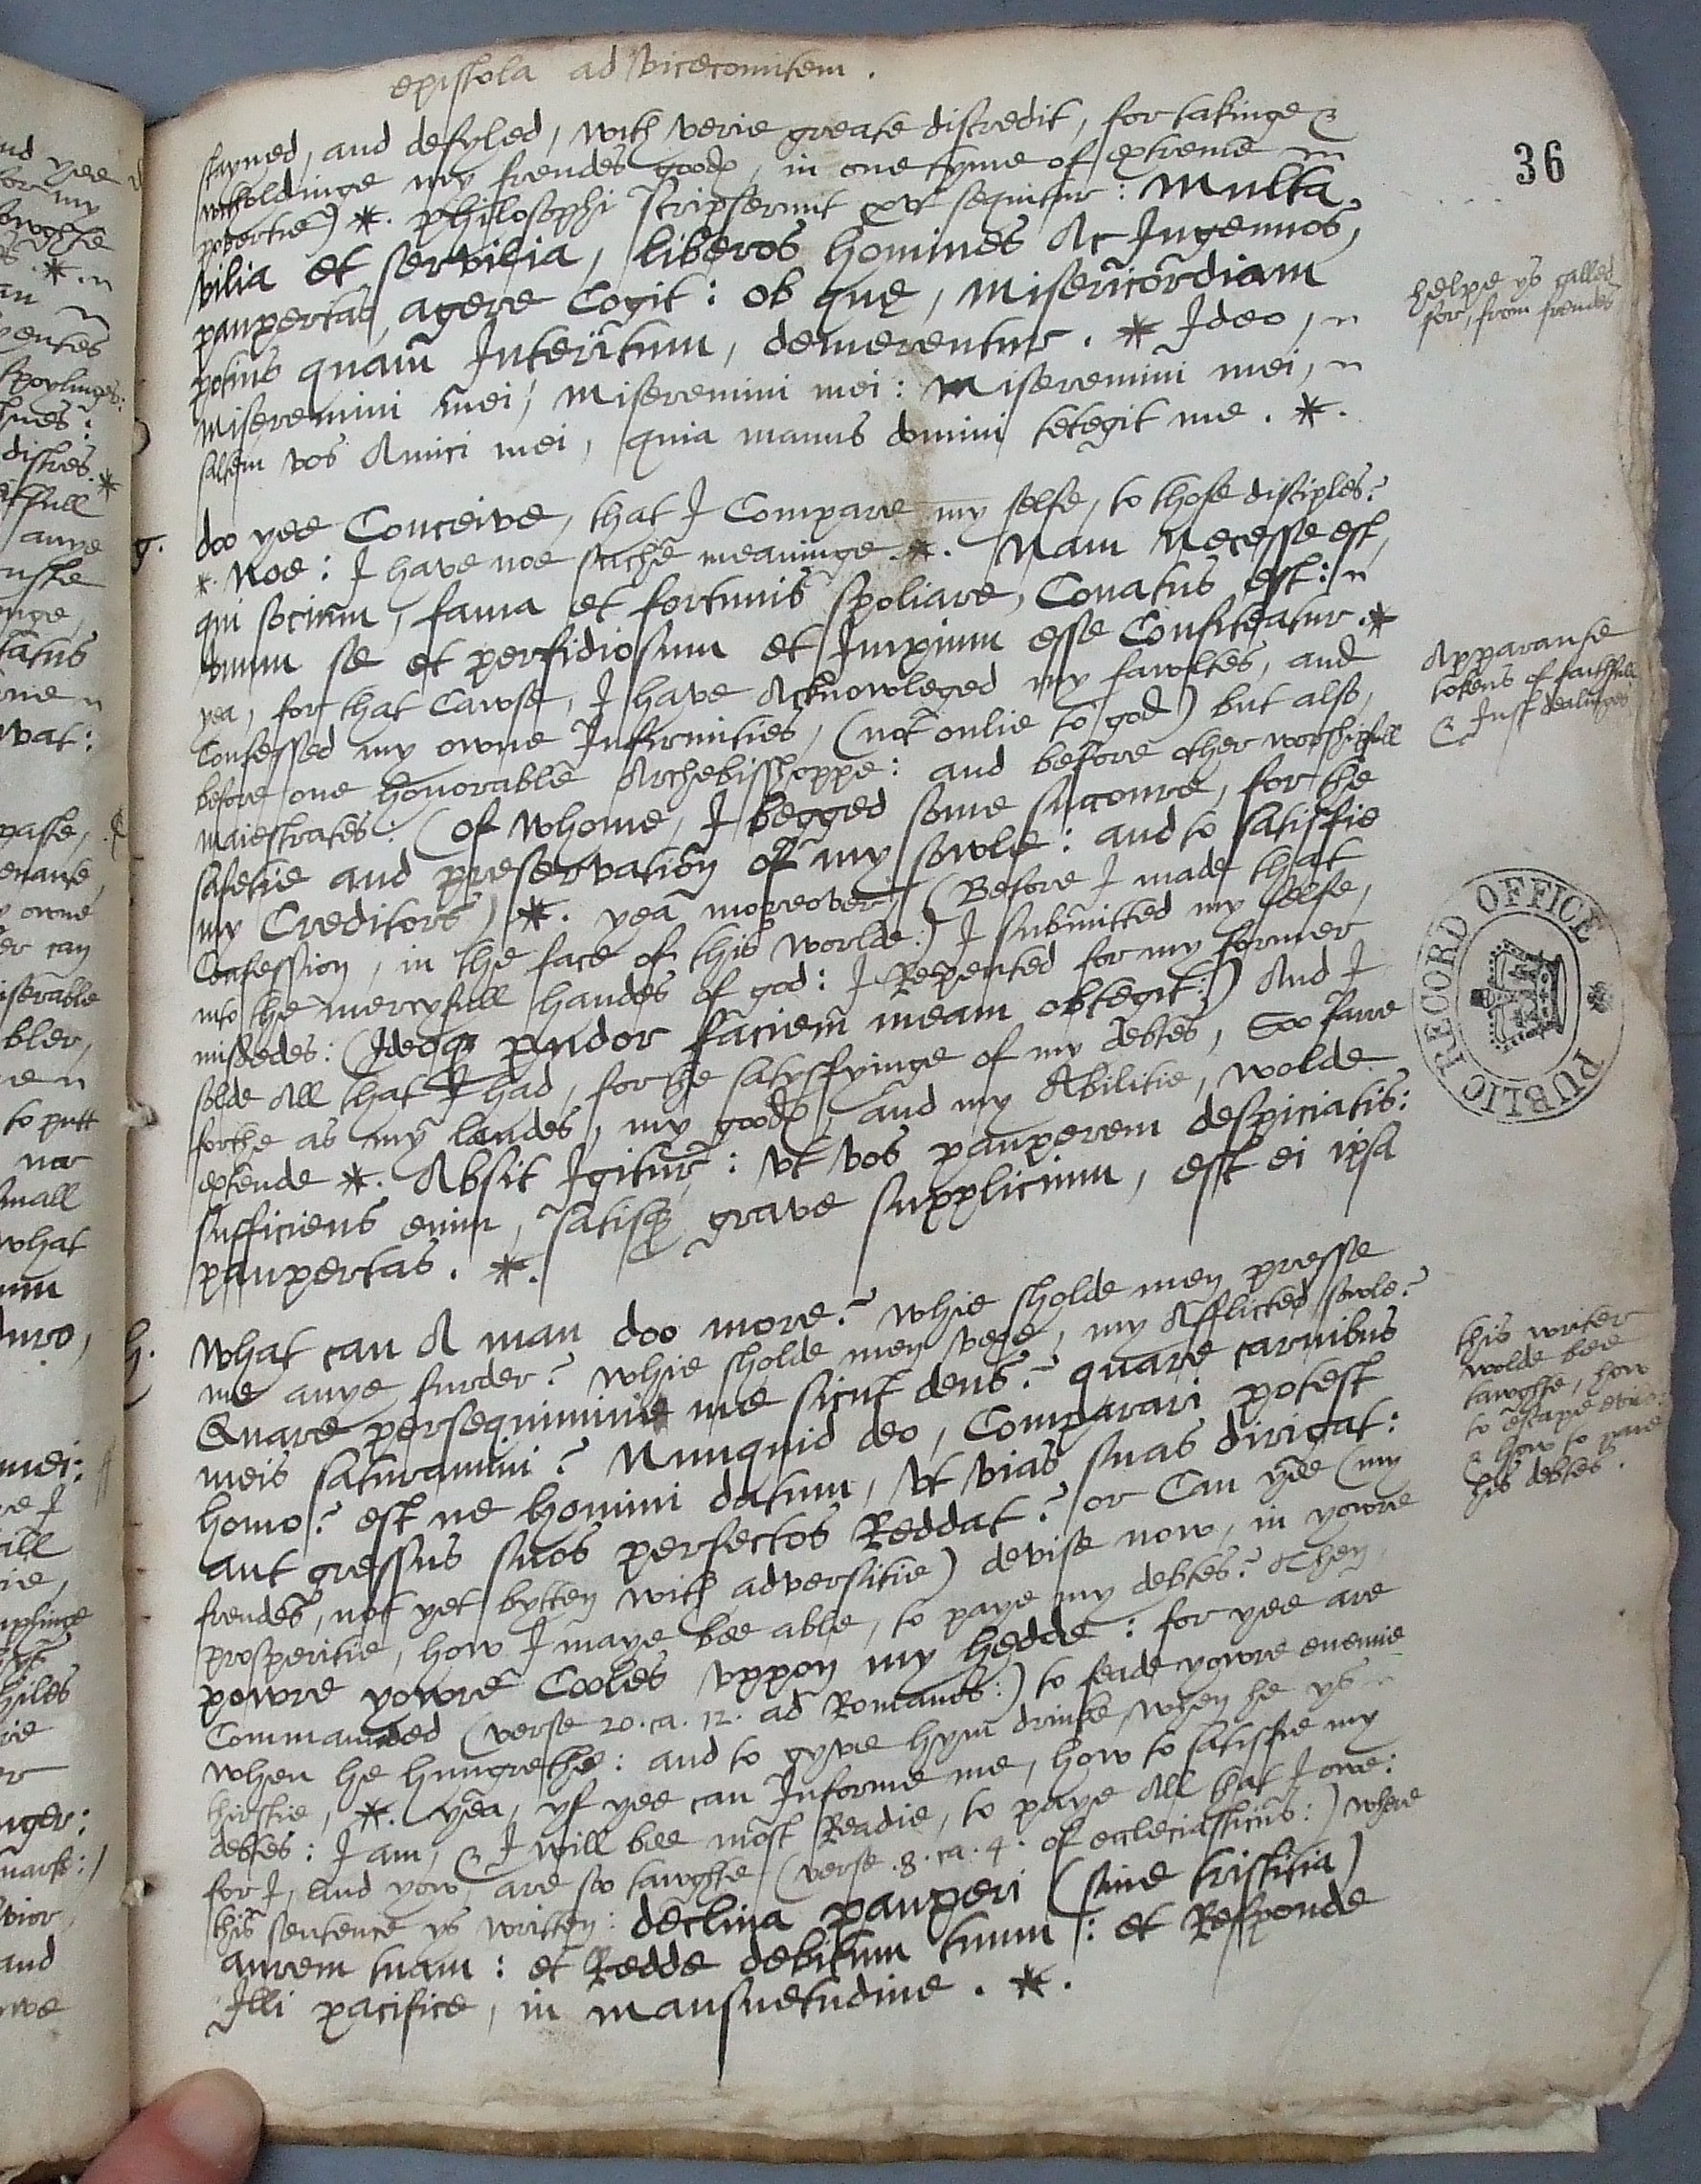 epistola ad vicecomitem.
36
stayned, and defyled, with verie greate discredit, for takinge &
witholdinge my frendes goodes, in one tyme of extreme
povertie) *. philosophi scripserunt prout sequitur: Multa
vilia et servilia, liberos homines Ac Ingenuos,
paupertas, agere Cogit: ob que, misericordiam
potius quam Interitum, demerentur. * Ideo,
Miseremini mei, Miseremini mei: Miseremini mei,
saltem vos Amici mei, quia manus domini tetegit me. *.
helpe ys called
for, from frendes
g. doo yee Conceive, that I Compare my selfe, to those disciples?
*. Noe: I have noe suche meaninge. *. Nam Necesse est,
qui socium, fama et fortunis spoliare, Conatus est:
unum se et perfidiosum et Impium esse Confiteatur. *
yea, for that Cawse, I have Acknowleged my fawltes, and
Confessed my owne Infirmities, (not onlie to god) but also,
before one honorable Archebisshoppe: and before other worshipfull
maiestrates: (of whome, I begged some succoure, for the
safetie and preservation of my sowle: and to satisfie
my Creditors) *. yea moreover, (Before I made that
Confession, in the face of this worlde:) I submitted my selfe,
into the mercyfull handes of god: I Repented for my former
misdedes: (Ideoque pudor faciem meam obtegit:) And I
solde All that I had, for the satysfyinge of my debtes, Soo farre
forthe as my landes, my goodes, and my Abilitie, wolde
extende *. Absit Igitur: ut vos pauperem despiciatis:
sufficiens enim, satisque grave supplicium, est ei ipsa
paupertas. *.
Apparanse
tokens of faithfull
& Just dealinges
PUBLIC RECORD OFFICE
h. What can A man doo more? Whie sholde men presse
me anye furder? Whie sholde men vexe, my Afflicted sowle?
Quare persequimini me sicut deus? quare carnibus
meis saturamini? Nunquid deo, Comparari potest
homo? est ne homini datum, ut vias suas dirigat:
aut gressus suos perfectos Reddat? or Can yee (my
frendes, not yet bytten with adversitie) devise now, in yowre
prosperitie, how I maye bee able, to paye my debtes? Then
powre yowre Cooles uppon my hedde: for yee are
Commaunded (verse 20. ca. 12. ad Romanos:) to feede yowre enemie
when he hungrethe: and to gyve hym drinke, when he ys
thirstie, *. yea, yf yee can Informe me, how to satisfie my
debtes: I am, & I will bee most Readie, to paye All that I owe:
for I, and yow, are so tawghte (verse. 8. ca. 4. of ecclesiasticus:) where
this sentence ys written: declina pauperi (sine tristitia)
aurem tuam: et Redde debitum tuum: et Responde
Illi pacifice, in mansuetudine. *.
this writer
wolde bee
tawghte, how
to escape
& how to paie
his debtes.